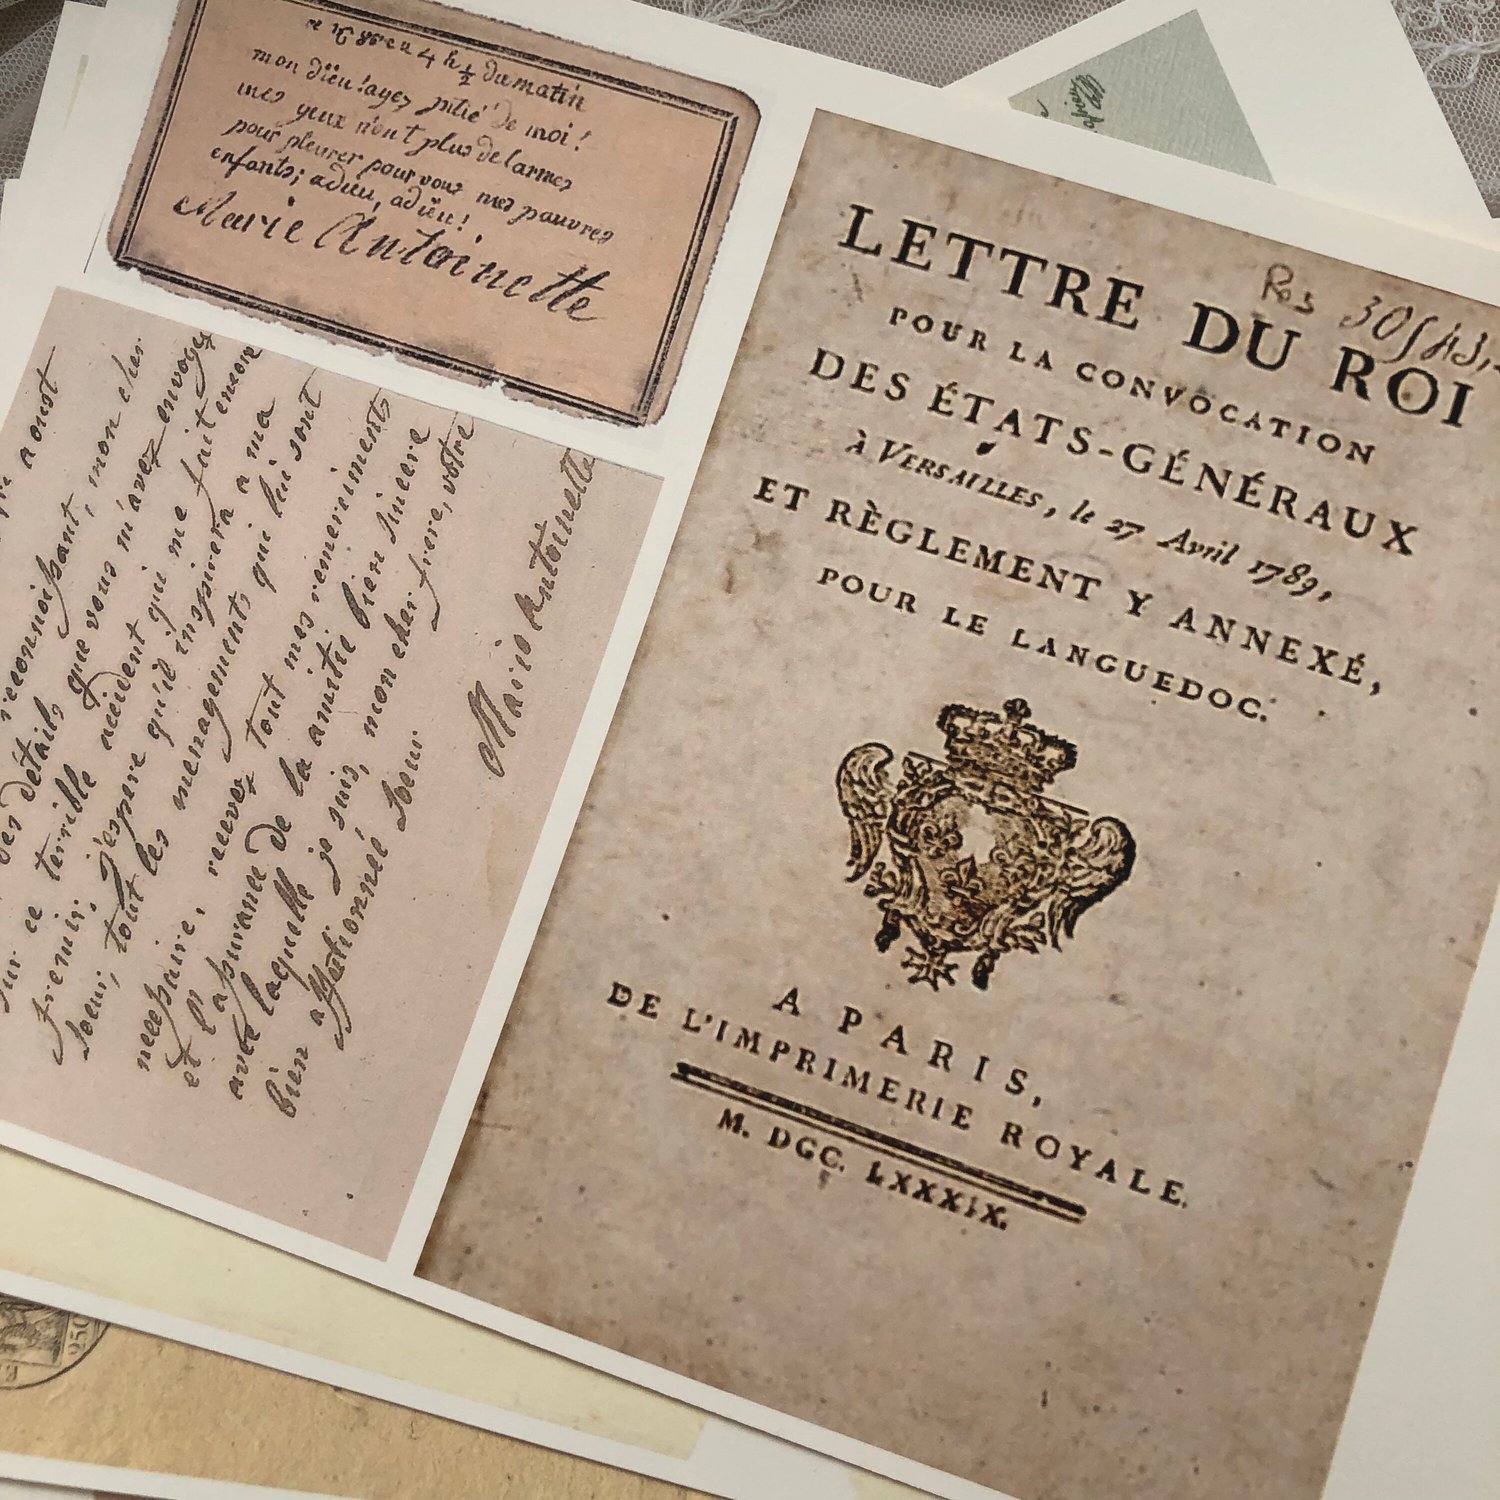 4 h ½ du matin
mon dïeu! ayez pitié de moi!
mes yeux n'ont plus de larmes
pour pleurer pour vous mes pauvres
enfants; adieu, adieu!
Marie Antoinette
aoust
reconnoissant, mon cher
des détails que vous m'avez envoyez
sur ce terrible accident qui me fait encore
fremir, j'espere qu'il inspirera a ma
soeur, tout les menagements qui lui sont
necessaire, recevez tout mes remerciments
et l'assurance de la amitie bien sincere
avec laquelle je suis, mon cher frere, votre
bien affectionnée soeur
Marie Antoinette
LETTRE DU ROI
POUR LA CONVOCATION
DES ÉTATS-GÉNÉRAUX
À VERSAILLES, le 27 Avril 1789,
ET RÈGLEMENT Y ANNEXÉ,
POUR LE LANGUEDOC.
A PARIS,
DE L'IMPRIMERIE ROYALE.
M. DCC. LXXXIX.
250